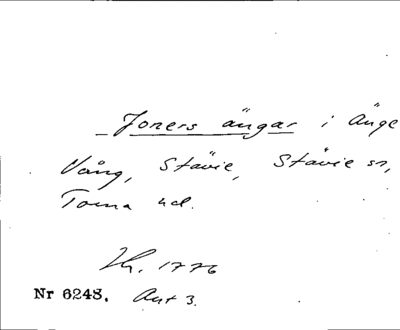 Joners ängar i Änge
Vång, Stävie, Stävie sn,
Torna hd.
Lh. 1776
Nr 6248. Akt 3.